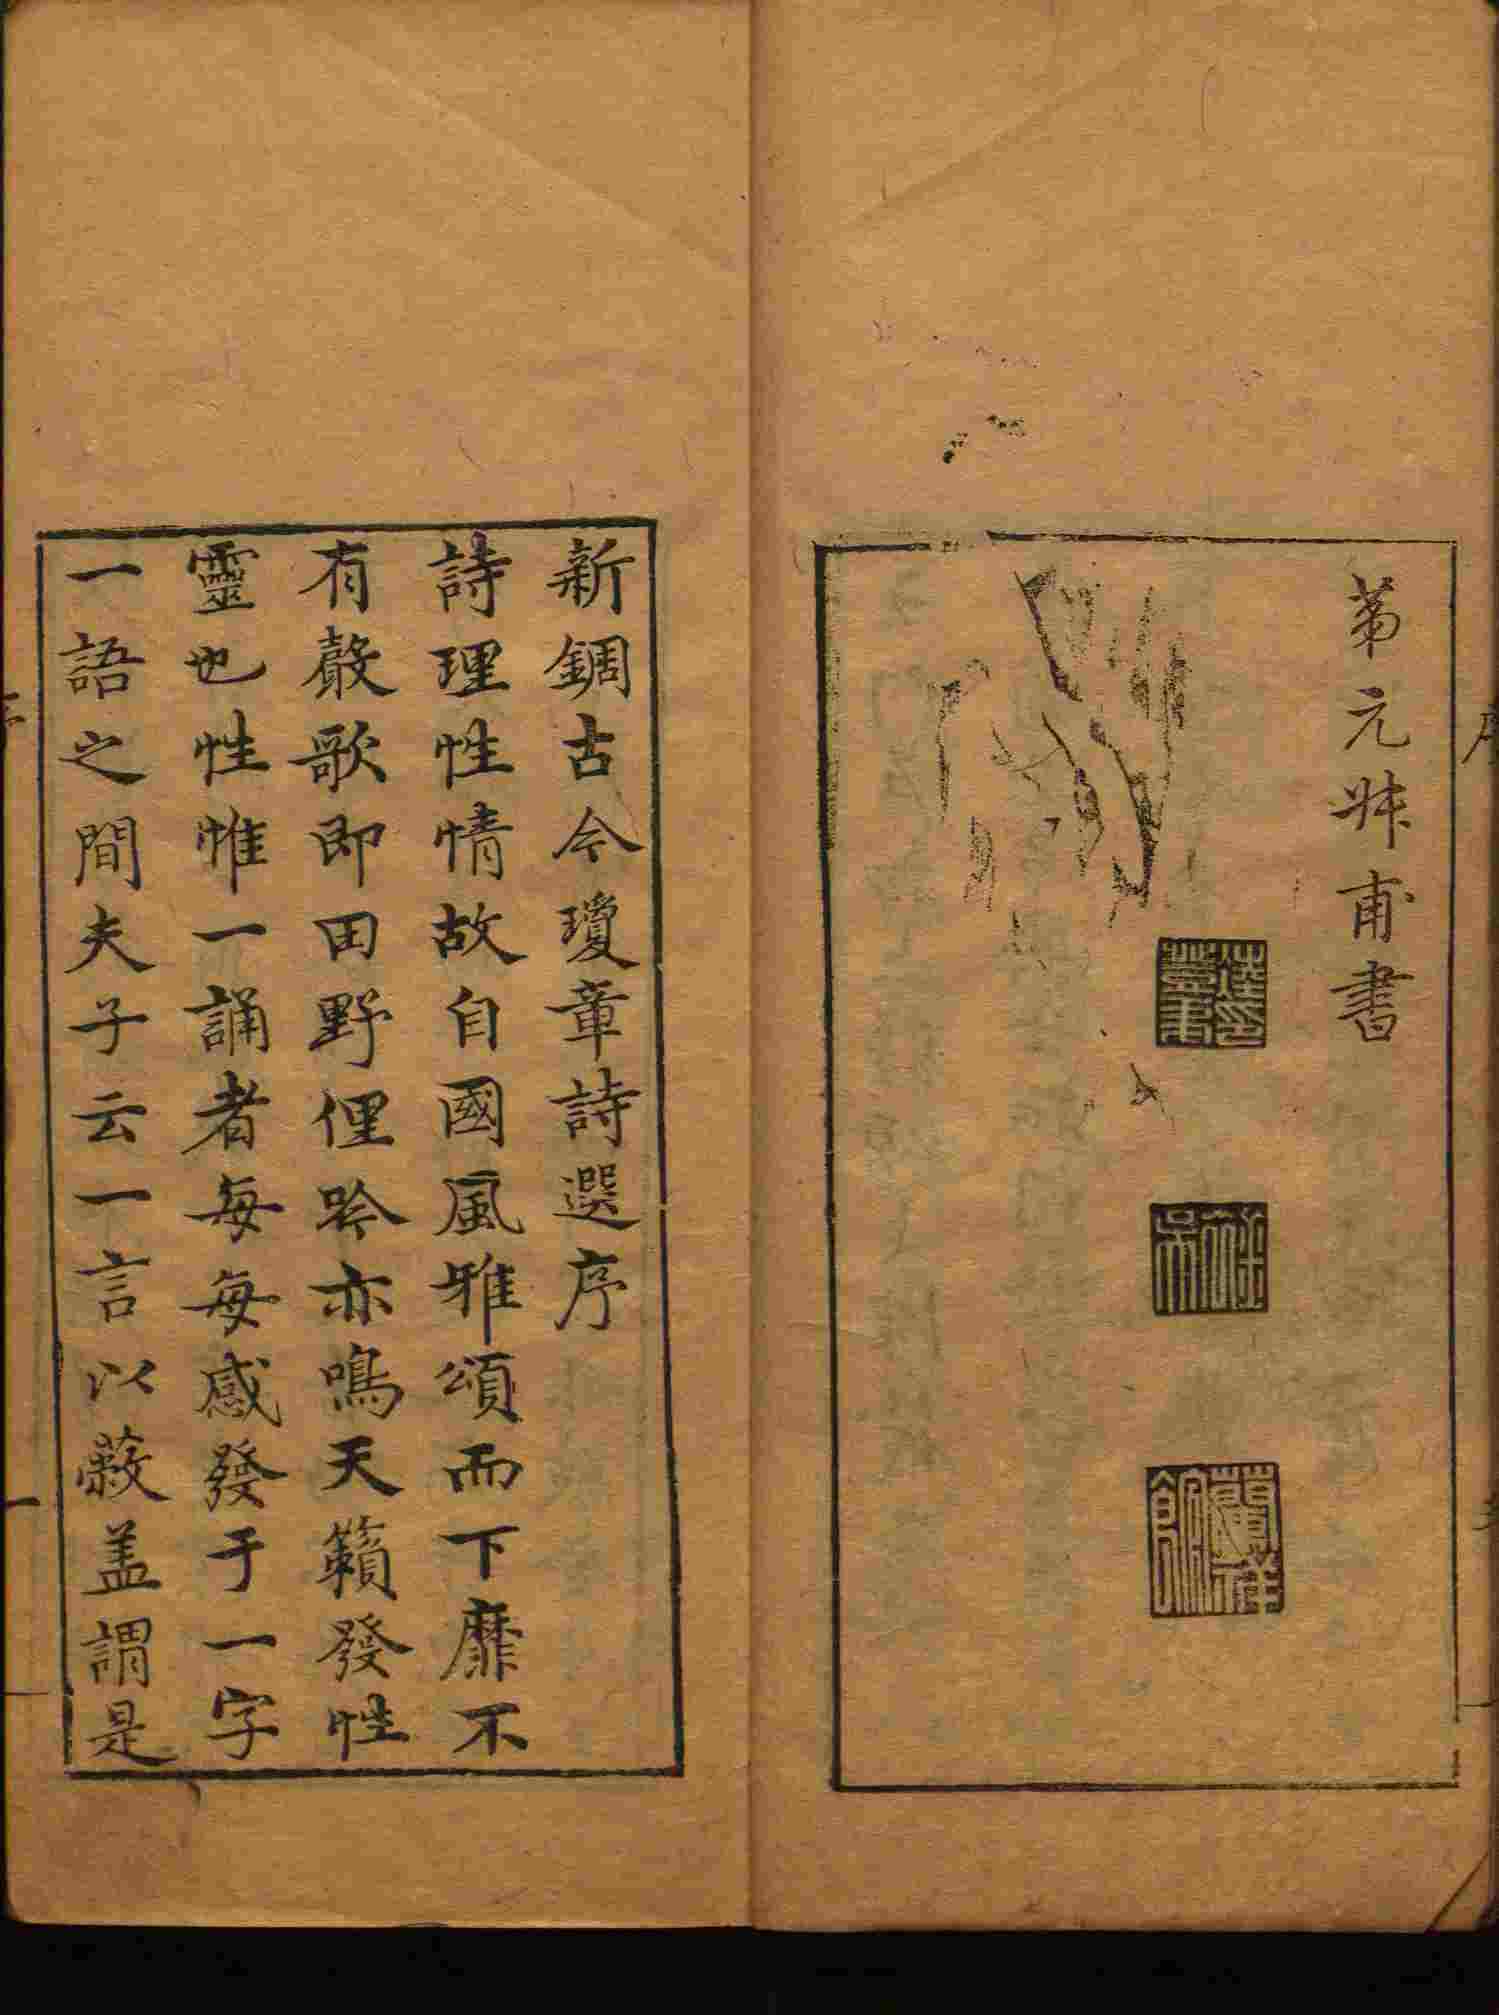 弟元昧甫書
新錭古今瓊章詩選序
詩理性情故自國風雅頌而下靡不
有聲歌即田野俚吟亦鳴天籟發性
靈也性惟一誦者每每感發于一字
一語之間夫子云一言以蔽盖謂是